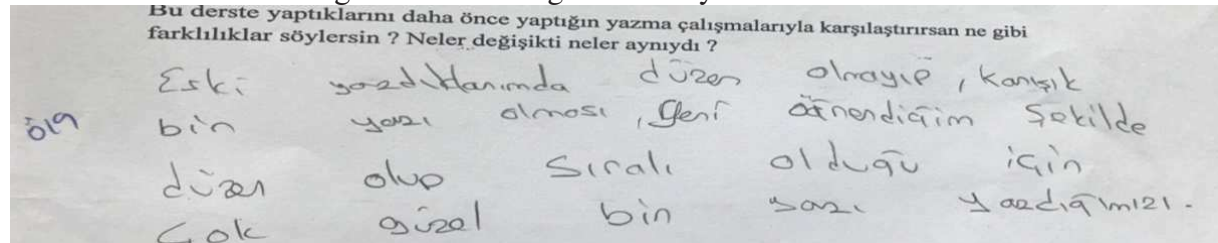 Bu derste yaptıklarını daha önce yaptığın yazma çalışmalarıyla karşılaştırırsan ne gibi
farklılıklar söylersin ? Neler değişikti neler aynıydı ?
Eski yazdıklarımda düzen olmayıp, karışık
Ö19 bir yazı olması, yeni öğrendiğim şekilde
düzen olup sıralı olduğu için
çok güzel bir yazı yazdığımızı.